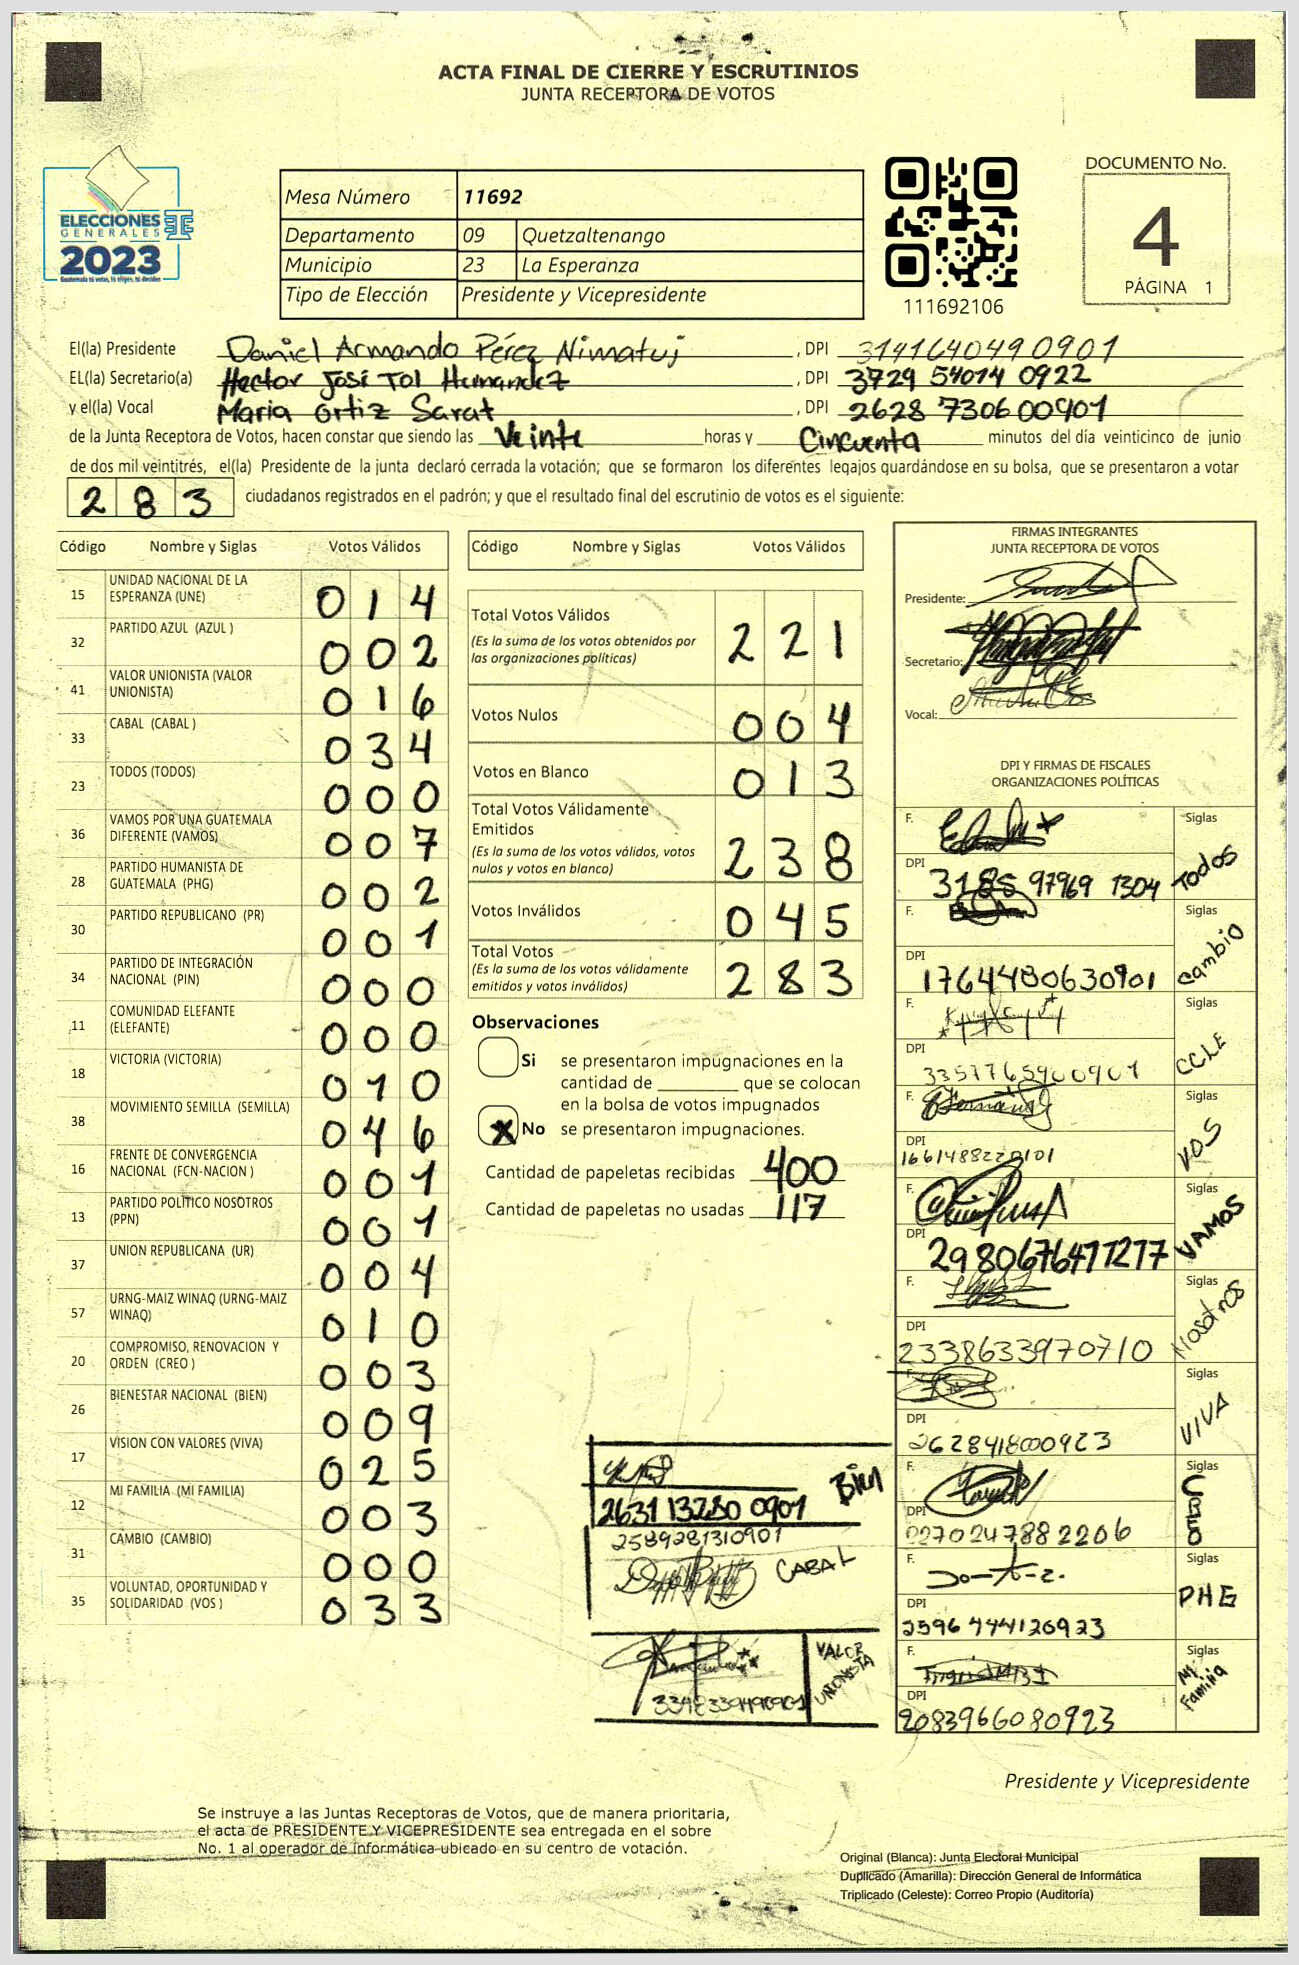 ACTA FINAL DE CIERRE Y ESCRUTINIOS
JUNTA RECEPTORA DE VOTOS
ELECCIONES
GENERALES
2023
Guatemala tú votas, tú eliges, tú decides
Mesa Número 11692
Departamento 09 Quetzaltenango
Municipio 23 La Esperanza
Tipo de Elección Presidente y Vicepresidente
111692106
DOCUMENTO No.
4
PÁGINA 1
El(la) Presidente Daniel Armando Pérez Nimatuj, DPI 314164049 0901
EL(la) Secretario(a) Hector José Tol Hernandez, DPI 3729 54014 0922
y el(la) Vocal Maria Ortiz Sarat, DPI 2628 73060 0901
de la Junta Receptora de Votos, hacen constar que siendo las Veinte horas y Cincuenta minutos del día veinticinco de junio
de dos mil veintitrés, el(la) Presidente de la junta declaró cerrada la votación; que se formaron los diferentes legajos guardándose en su bolsa, que se presentaron a votar
283 ciudadanos registrados en el padrón; y que el resultado final del escrutinio de votos es el siguiente:
Código Nombre y Siglas Votos Válidos
15 UNIDAD NACIONAL DE LA ESPERANZA (UNE) 014
32 PARTIDO AZUL (AZUL ) 002
41 VALOR UNIONISTA (VALOR UNIONISTA) 016
33 CABAL (CABAL ) 034
23 TODOS (TODOS) 000
36 VAMOS POR UNA GUATEMALA DIFERENTE (VAMOS) 007
28 PARTIDO HUMANISTA DE GUATEMALA (PHG) 002
30 PARTIDO REPUBLICANO (PR) 001
34 PARTIDO DE INTEGRACIÓN NACIONAL (PIN) 000
11 COMUNIDAD ELEFANTE (ELEFANTE) 000
18 VICTORIA (VICTORIA) 010
38 MOVIMIENTO SEMILLA (SEMILLA) 046
16 FRENTE DE CONVERGENCIA NACIONAL (FCN-NACION ) 001
13 PARTIDO POLÍTICO NOSOTROS (PPN) 001
37 UNION REPUBLICANA (UR) 004
57 URNG-MAIZ WINAQ (URNG-MAIZ WINAQ) 010
20 COMPROMISO, RENOVACION Y ORDEN (CREO ) 003
26 BIENESTAR NACIONAL (BIEN) 009
17 VISION CON VALORES (VIVA) 025
12 MI FAMILIA (MI FAMILIA) 003
31 CAMBIO (CAMBIO) 000
35 VOLUNTAD, OPORTUNIDAD Y SOLIDARIDAD (VOS ) 033
Código Nombre y Siglas Votos Válidos
Total Votos Válidos 221
(Es la suma de los votos obtenidos por
las organizaciones políticas)
Votos Nulos 004
Votos en Blanco 013
Total Votos Válidamente
Emitidos 238
(Es la suma de los votos válidos, votos
nulos y votos en blanco)
Votos Inválidos 045
Total Votos 283
(Es la suma de los votos válidamente
emitidos y votos inválidos)
Observaciones
Si se presentaron impugnaciones en la
cantidad de ________ que se colocan
en la bolsa de votos impugnados
X No se presentaron impugnaciones.
Cantidad de papeletas recibidas 400
Cantidad de papeletas no usadas 117
2631 13250 0901 Bien
2589281310901
CABAL
VALOR UNIONISTA
FIRMAS INTEGRANTES
JUNTA RECEPTORA DE VOTOS
Presidente:
Secretario:
Vocal:
DPI Y FIRMAS DE FISCALES
ORGANIZACIONES POLÍTICAS
F. Siglas
DPI 3185 97969 1304 TODOS
F. Siglas
DPI 1764480630901 Cambio
F. Siglas
DPI 3357765900901 CCLE
F. Siglas
DPI 1661488220101 VOS
F. Siglas
DPI 2980676471217 VAMOS
F. Siglas
DPI 2338633970710 Nosotros
F. Siglas
DPI 2628418000923 VIVA
F. Siglas
DPI 2270247882206 CREO
F. Siglas
DPI 2596444120923 PHG
F. Siglas
DPI 2083966080923 Mi Familia
Presidente y Vicepresidente
Se instruye a las Juntas Receptoras de Votos, que de manera prioritaria,
el acta de PRESIDENTE Y VICEPRESIDENTE sea entregada en el sobre
No. 1 al operador de informática ubicado en su centro de votación.
Original (Blanca): Junta Electoral Municipal
Duplicado (Amarilla): Dirección General de Informática
Triplicado (Celeste): Correo Propio (Auditoría)